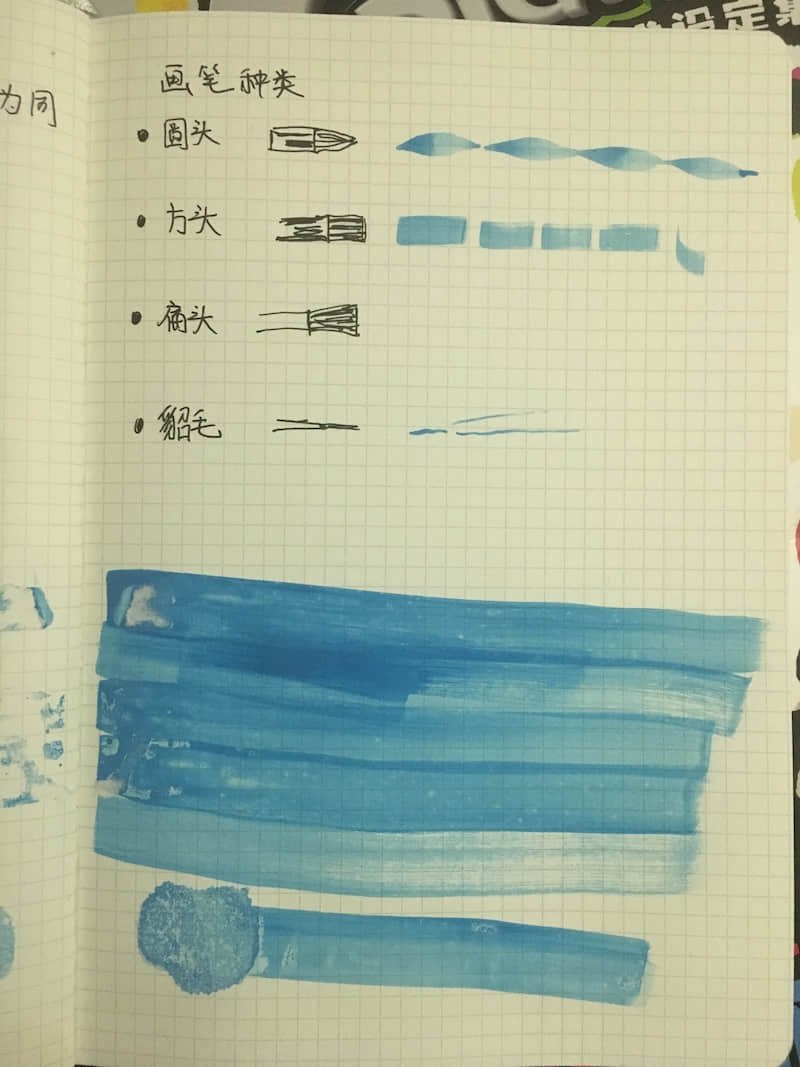 设定集
为同
画笔种类
• 圆头
• 方头
• 扁头
• 貂毛